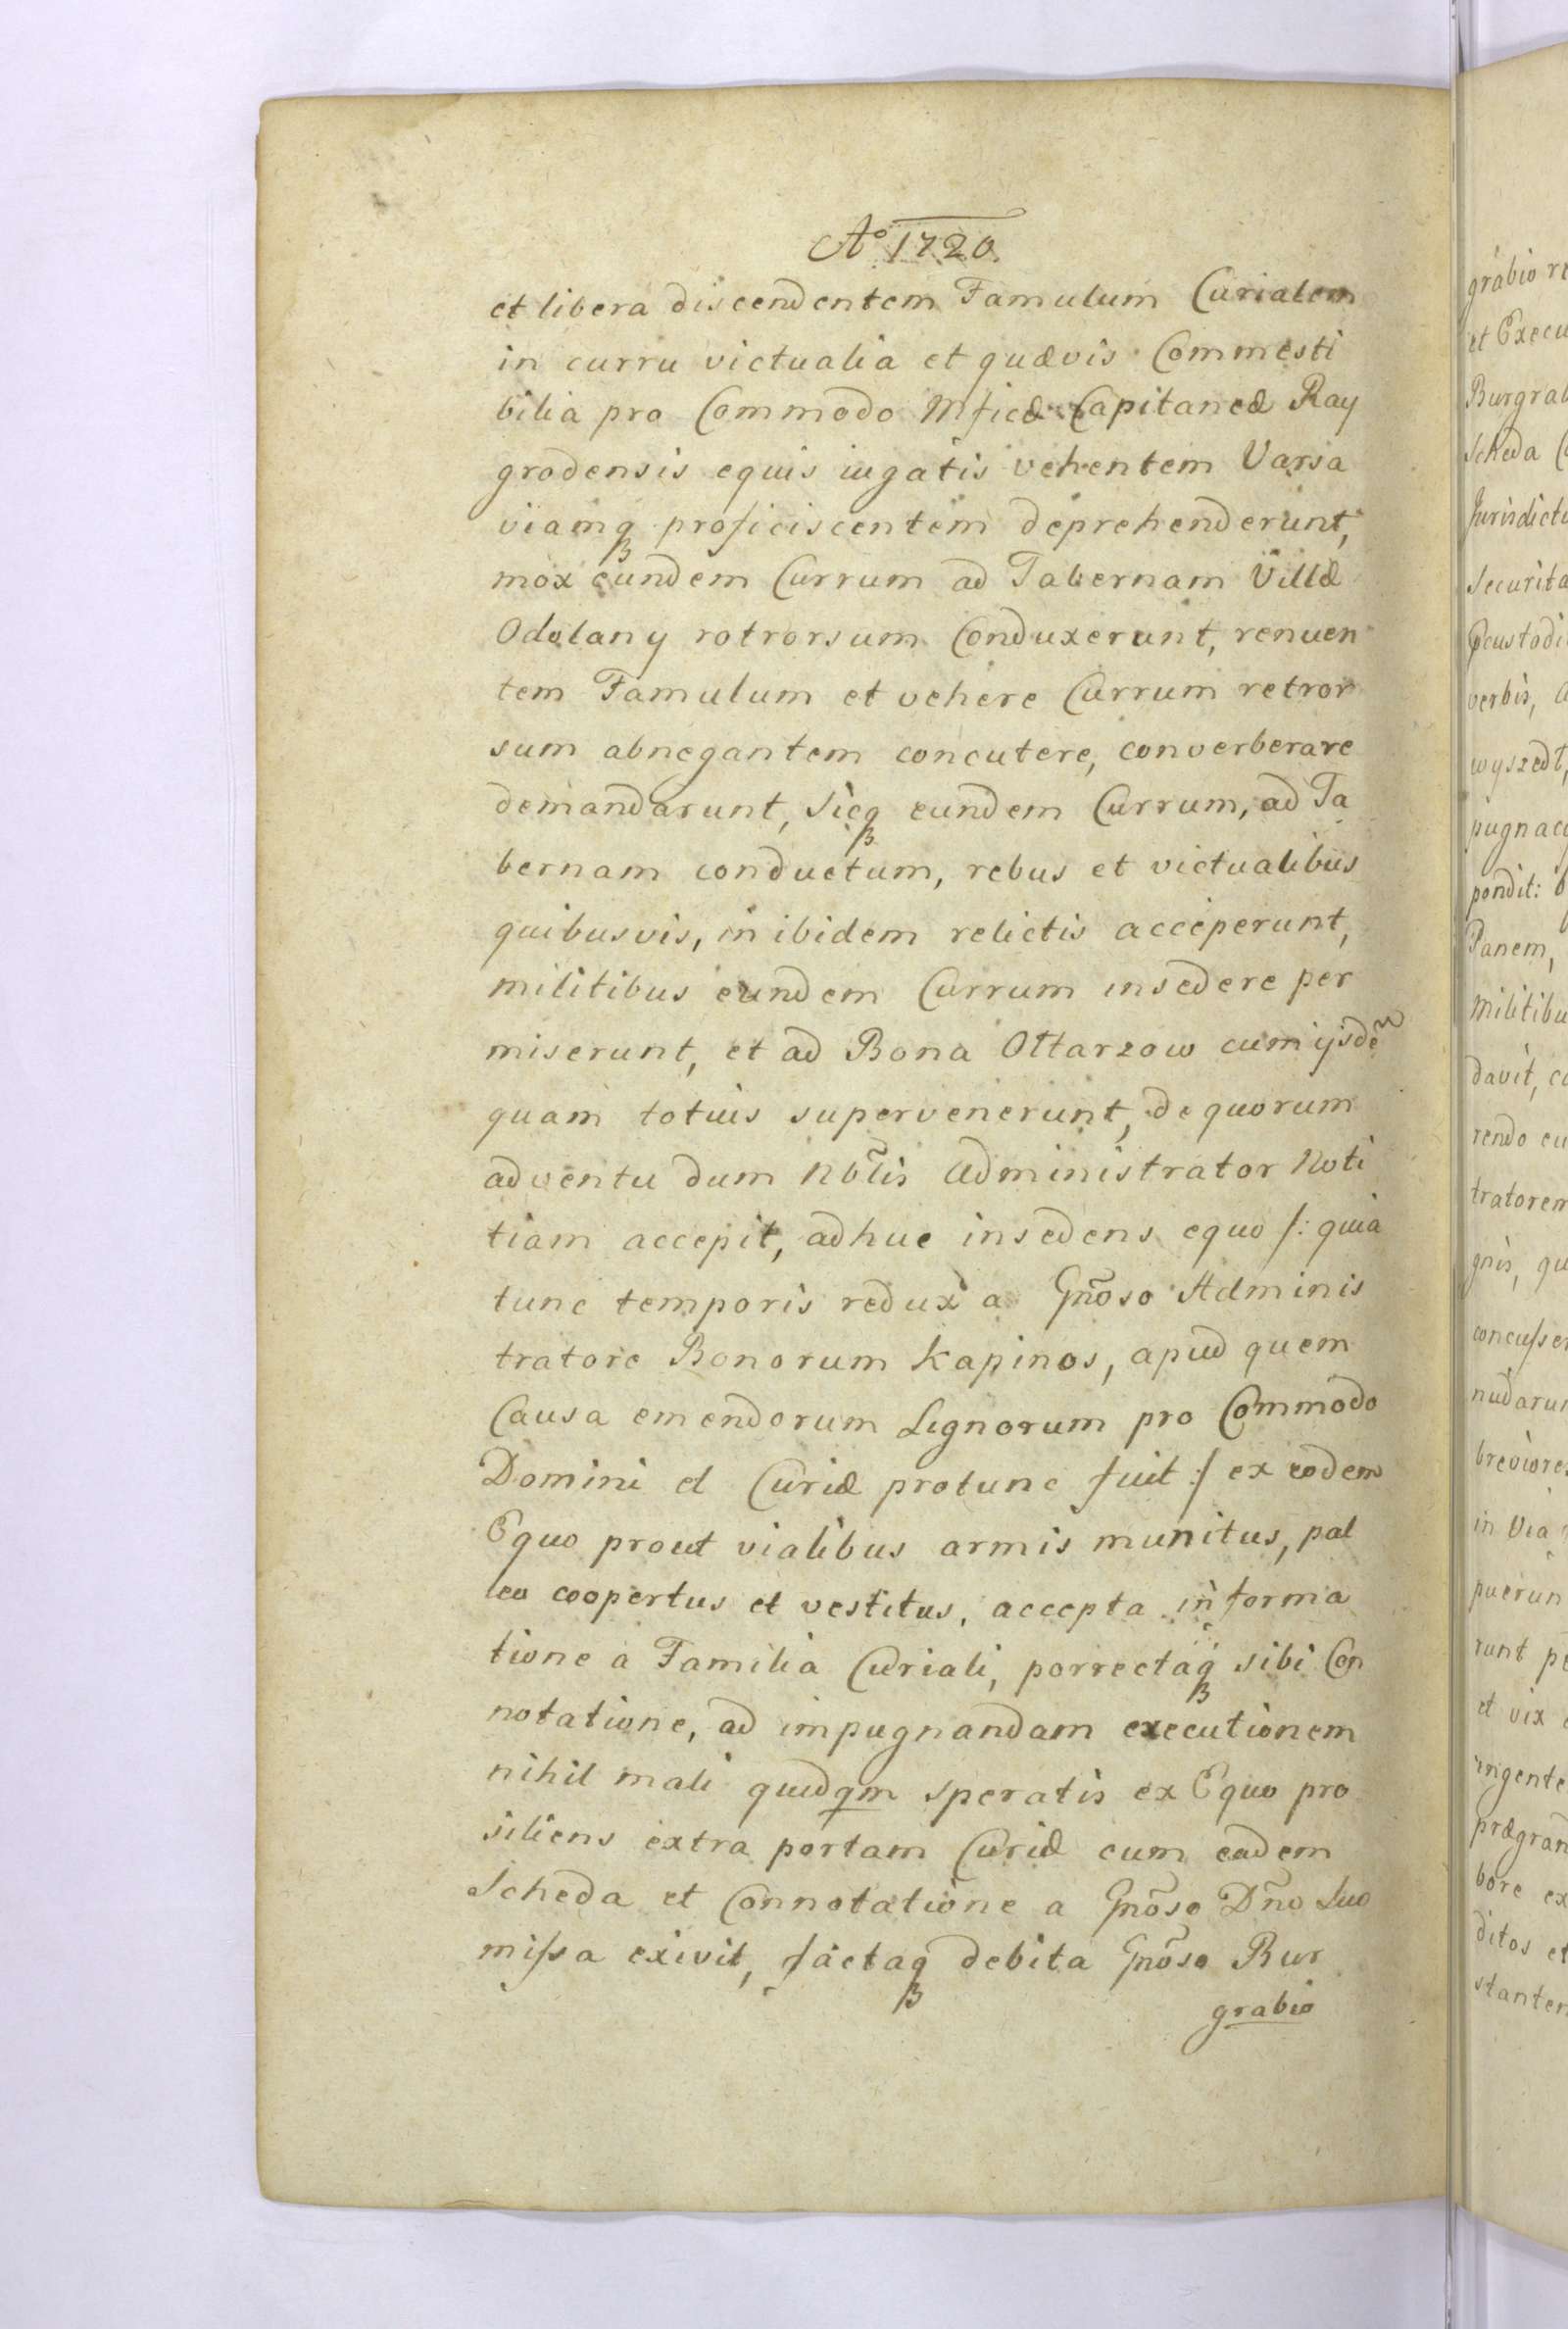 Aº 1720
et libera discendentem Famulum Curialem
in curru victualia et quævis Commesti
bilia pro Commodo Mficæ Capitaneæ Ray
grodensis equis iugatis vehentem Varsa
viamq proficiscentem deprehenderunt,
mox eundem Currum ad Tabernam Villæ
Odolany rotrorsum Conduxerunt, renuen
tem Famulum et vehere Currum retror
sum abnegantem concutere, converberare
demandarunt, sicq eundem Currum, ad Ta
bernam conductum, rebus et victualibus
quibusvis, in ibidem relictis acceperunt,
militibus eundem Currum insedere per
miserunt, et ad Bona Ottarzow cum ijsdẽ
quam totius supervenerunt, de quorum
adventu dum Nobl̃is Administrator Noti
tiam accepit, adhuc insedens equo /: quia
tunc temporis redux a Gño̅so Adminis
tratore Bonorum Kapinos, apud quem
Causa emendorum Lignorum pro Commodo
Domini et Curiæ protunc fuit :/ ex eodem
Equo prout vialibus armis munitus, pal
leo coopertus et vestitus, accepta informa
tione a Familia Curiali, porrectaq sibi Con
notatione, ad impugnandam executionem
nihil mali quidqm speratis ex Equo pro
siliens extra portam Curiæ cum eadem
Scheda et Connotatione a Gñoso Dño Suo
missa exivit, factaq debita Gñoso Bur
grabio
grabio
et Execu
Burgrab
Scheda
Jurisdict
securita
custodi
verbis,
wyszedł,
pugnac
pondit:
Panem,
militibu
davit,
rendo
tratorem
gnis, qu
concusser
nudarun
breviores
in Via
puerun
runt
et vix
ingente
prægran
bore ex
ditos et
stanten